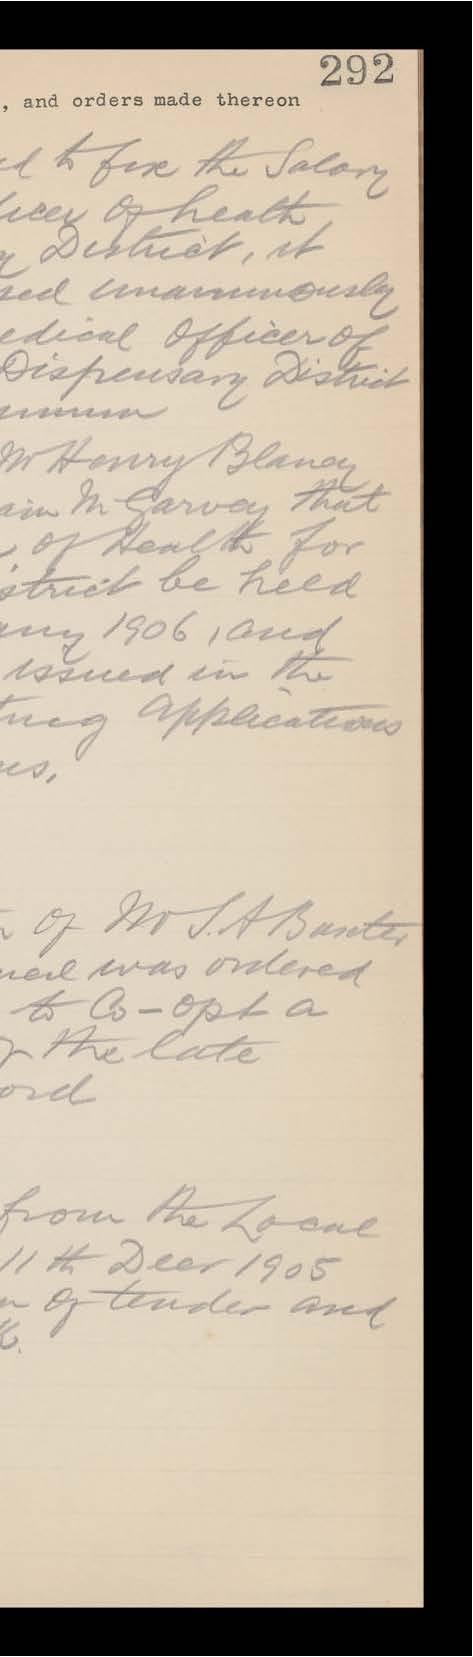 292
, and orders made thereon
ed to fix the Salary
ficer of health
y District, it
sed unanimously
edical Officer of
Dispensary District
nnum
Mr Henry Blaney
ain McGarvey that
r of Health for
istrict be held
ary 1906, and
issued in the
ting applications
ns.
n of Mr S. A Baxter
ncil was ordered
to Co-opt a
f the late
ord
from the Local
11th Decr 1905
n of tender and